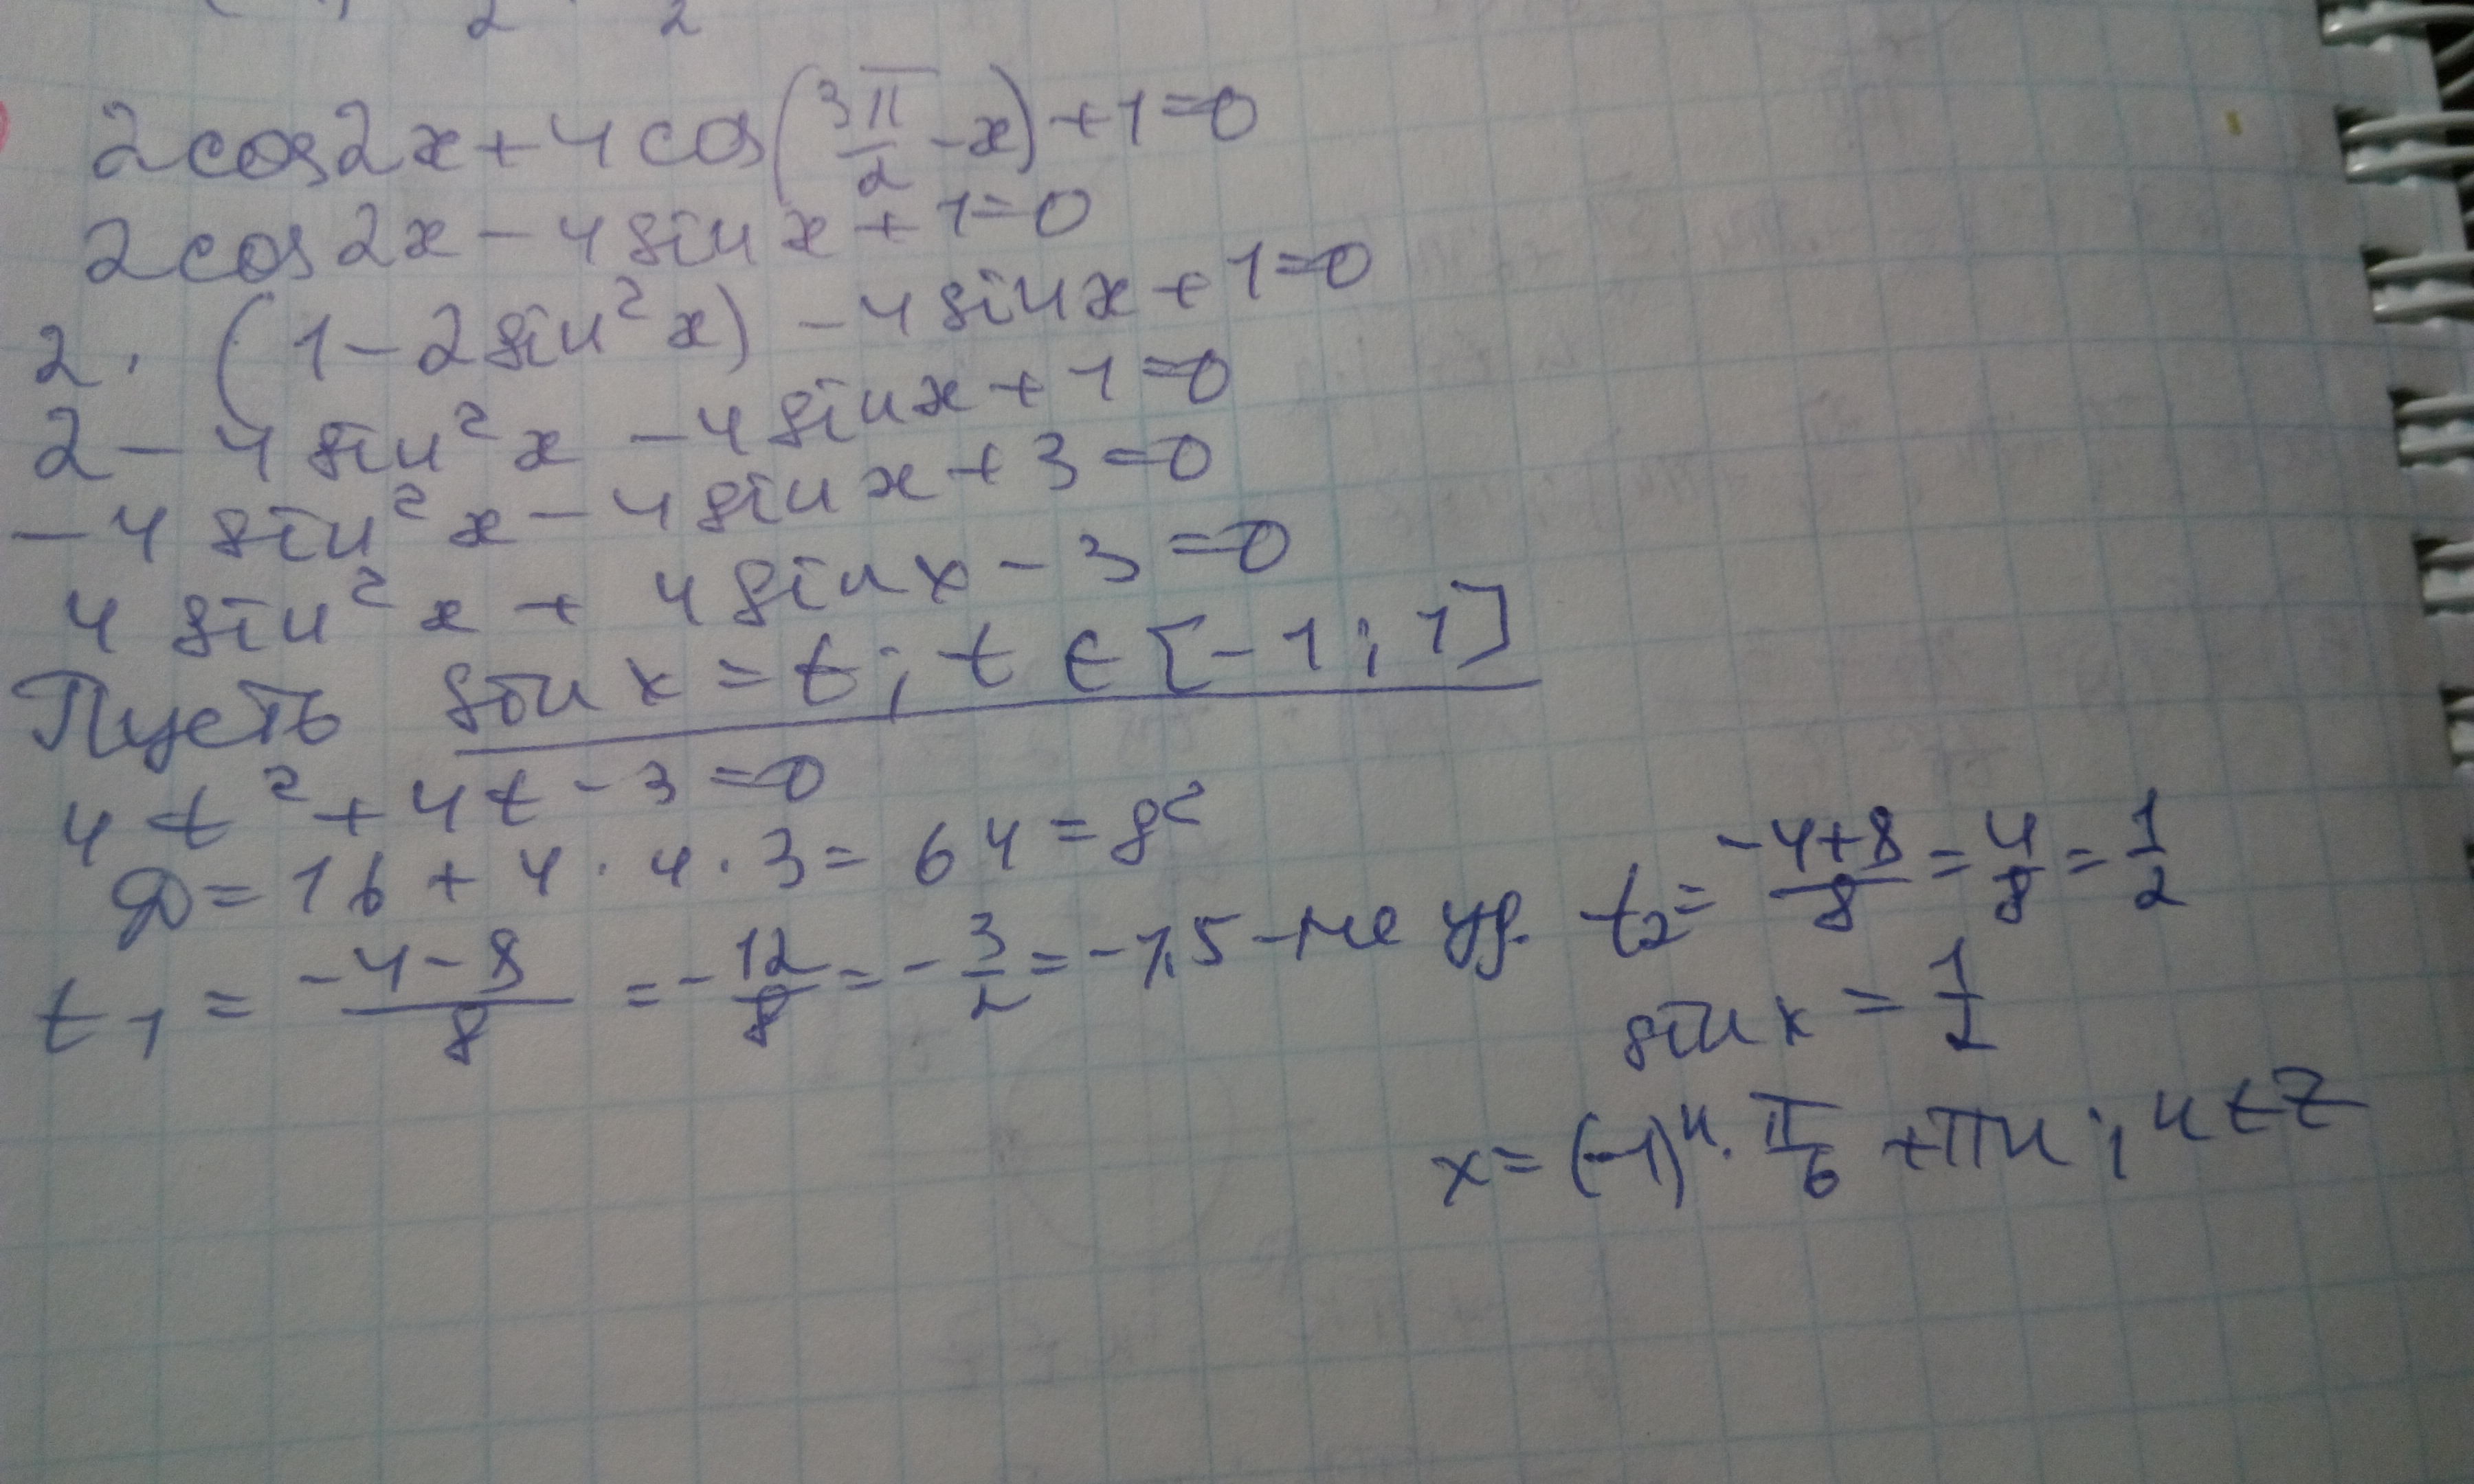 2 2
2cos2x+4cos(3π/2-x)+1=0
2cos2x-4sinx+1=0
2·(1-2sin²x)-4sinx+1=0
2-4sin²x-4sinx+1=0
-4sin²x-4sinx+3=0
4sin²x+4sinx-3=0
Пусть sinx=t; t∈[-1;1]
4t²+4t-3=0
D=16+4·4·3=64=8²
t₁=(-4-8)/8=-12/8=-3/2=-1,5-не уд. t₂=(-4+8)/8=4/8=1/2
sinx=1/2
x=(-1)ⁿ·π/6+πn; n∈Z